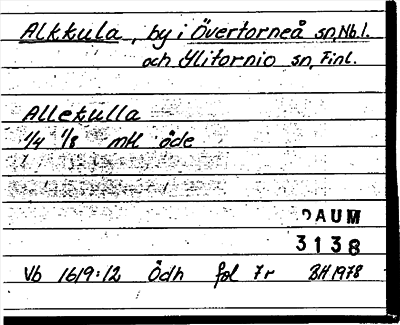 Alkkula, by i Övertorneå sn, Nb.l.
och Ylitornio sn, Finl.
Allekulla
1/4 1/8 mtl öde
DAUM
3138
Vb 1619:12 Ödh fol 7r BH 1978